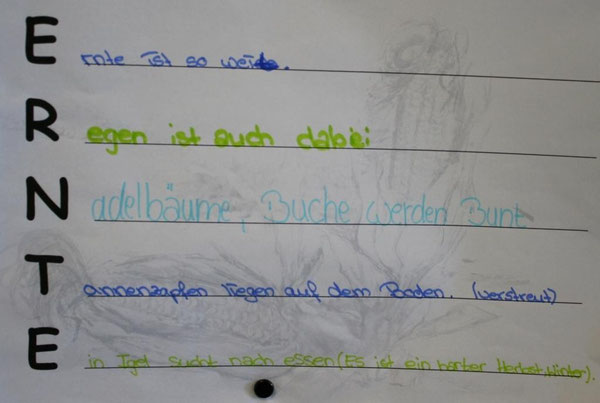 Ernte ist so weide.
Regen ist auch dabei
Nadelbäume, Buche werden Bunt
Tannenzapfen liegen auf dem Boden. (verstreut)
Ein Igel sucht nach essen (Es ist ein harber Herbst, Winter).